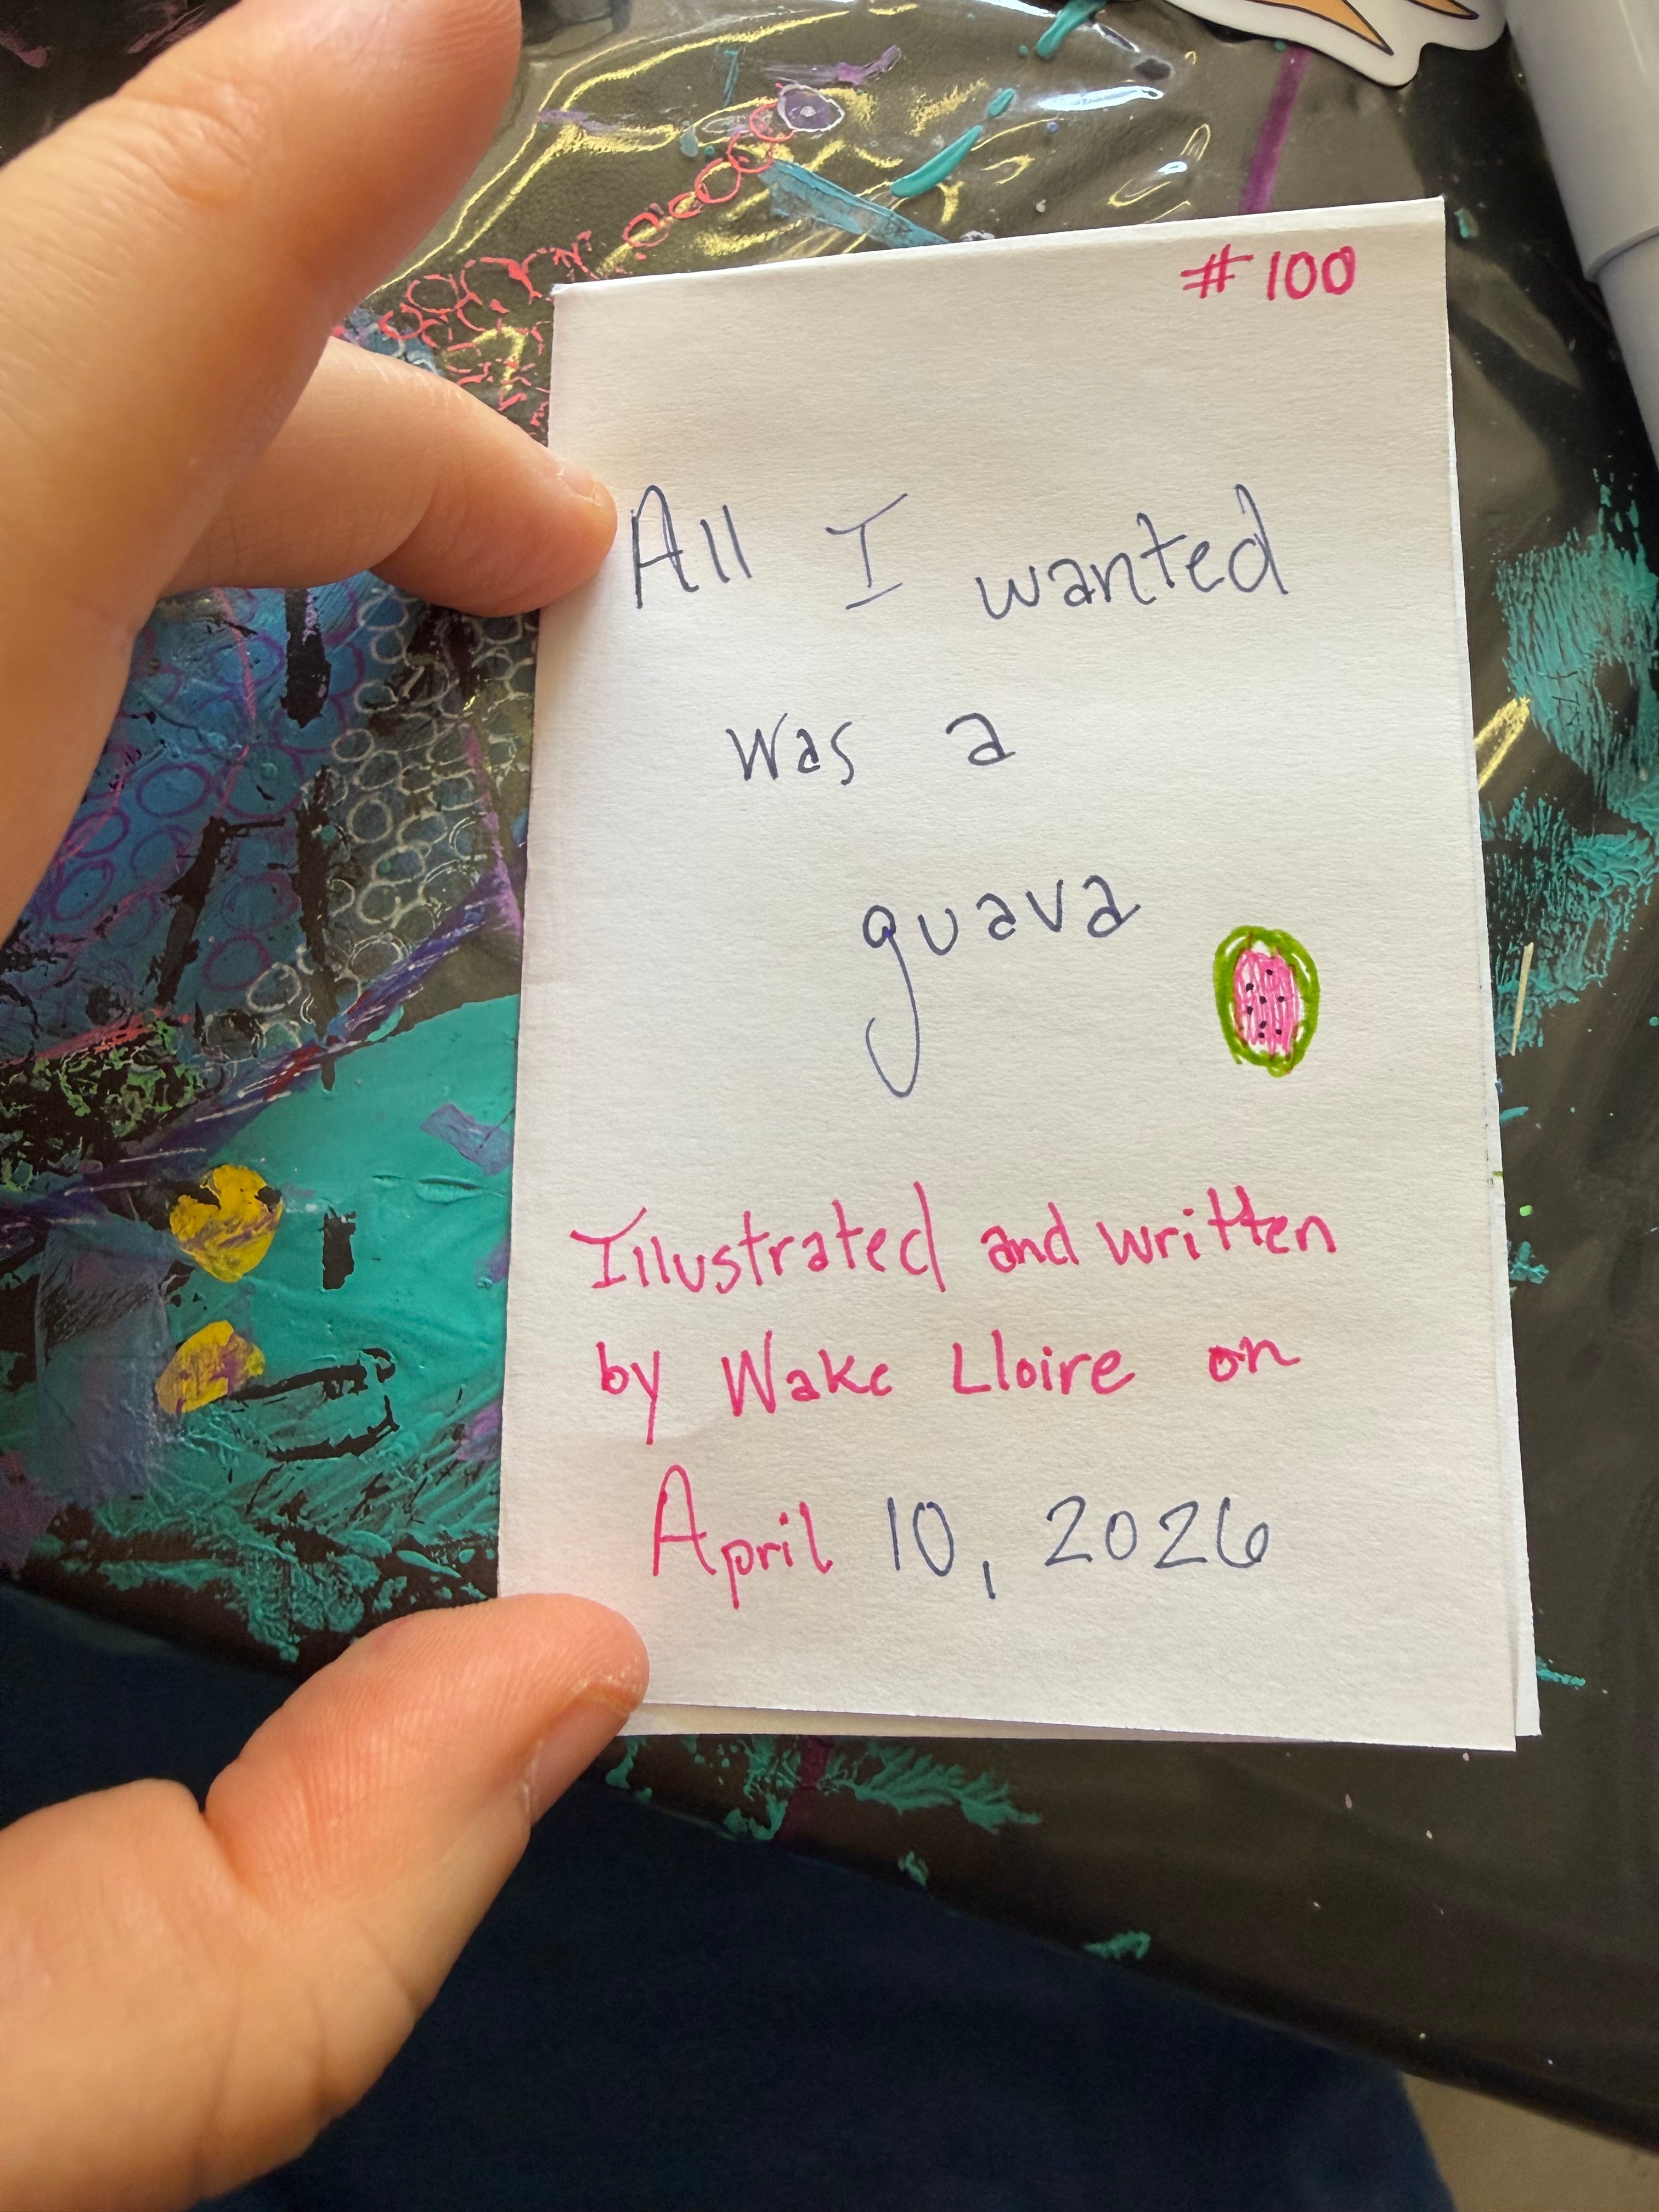 #100
All I wanted
was a
guava
Illustrated and written
by Wake Lloire on
April 10, 2026